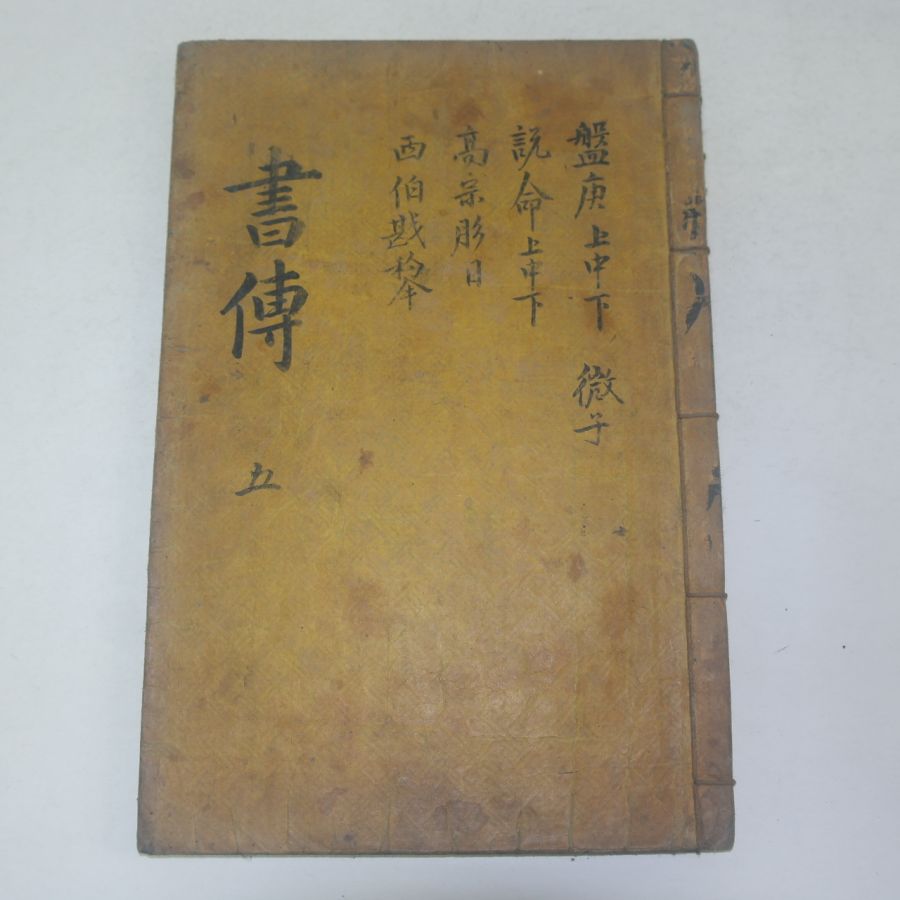 盤庚上中下 微子
説命上中下
高宗肜日
西伯戡黎
書傳 五